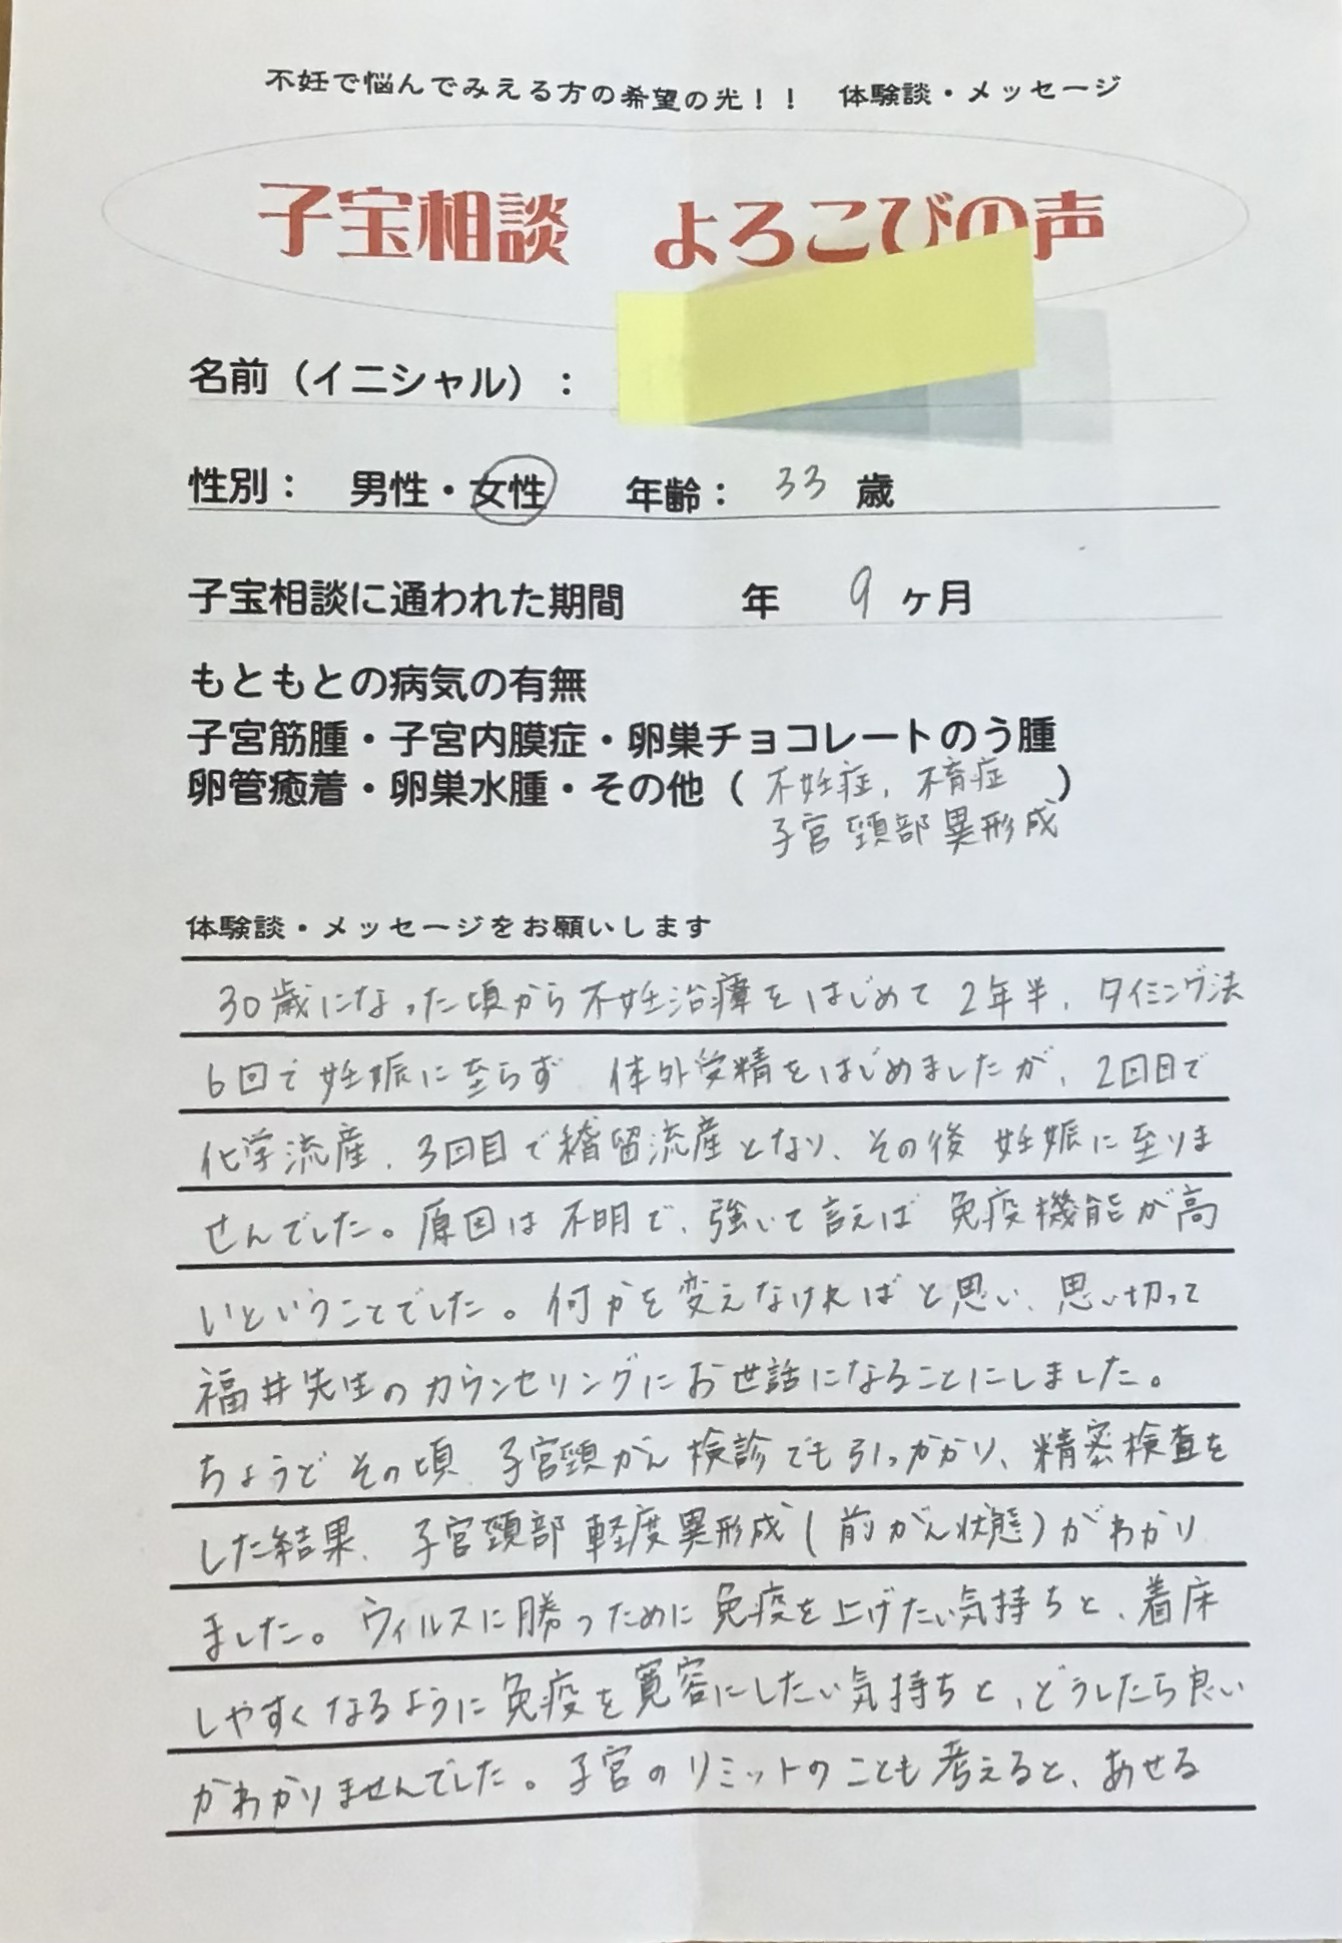 不妊で悩んでみえる方の希望の光！！　体験談・メッセージ
子宝相談　よろこびの声
名前（イニシャル）：
性別：　男性・女性　　年齢：　33　歳
子宝相談に通われた期間　　　年　　9　ヶ月
もともとの病気の有無
子宮筋腫・子宮内膜症・卵巣チョコレートのう腫
卵管癒着・卵巣水腫・その他（不妊症，不育症　）
子宮頸部異形成
体験談・メッセージをお願いします
30歳になった頃から不妊治療をはじめて2年半、タイミング法
6回で妊娠に至らず　体外受精をはじめましたが、2回目で
化学流産、3回目で稽留流産となり、その後 妊娠に至りま
せんでした。原因は不明で、強いて言えば 免疫機能が高
いということでした。何かを変えなければと思い、思い切って
福井先生のカウンセリングにお世話になることにしました。
ちょうどその頃、子宮頸がん検診でも引っかかり、精密検査を
した結果、子宮頸部軽度異形成(前がん状態)がわかり
ました。ウィルスに勝つために免疫を上げたい気持ちと、着床
しやすくなるように免疫を寛容にしたい気持ちと、どうしたら良い
かわかりませんでした。子宮のリミットのことも考えると、あせる